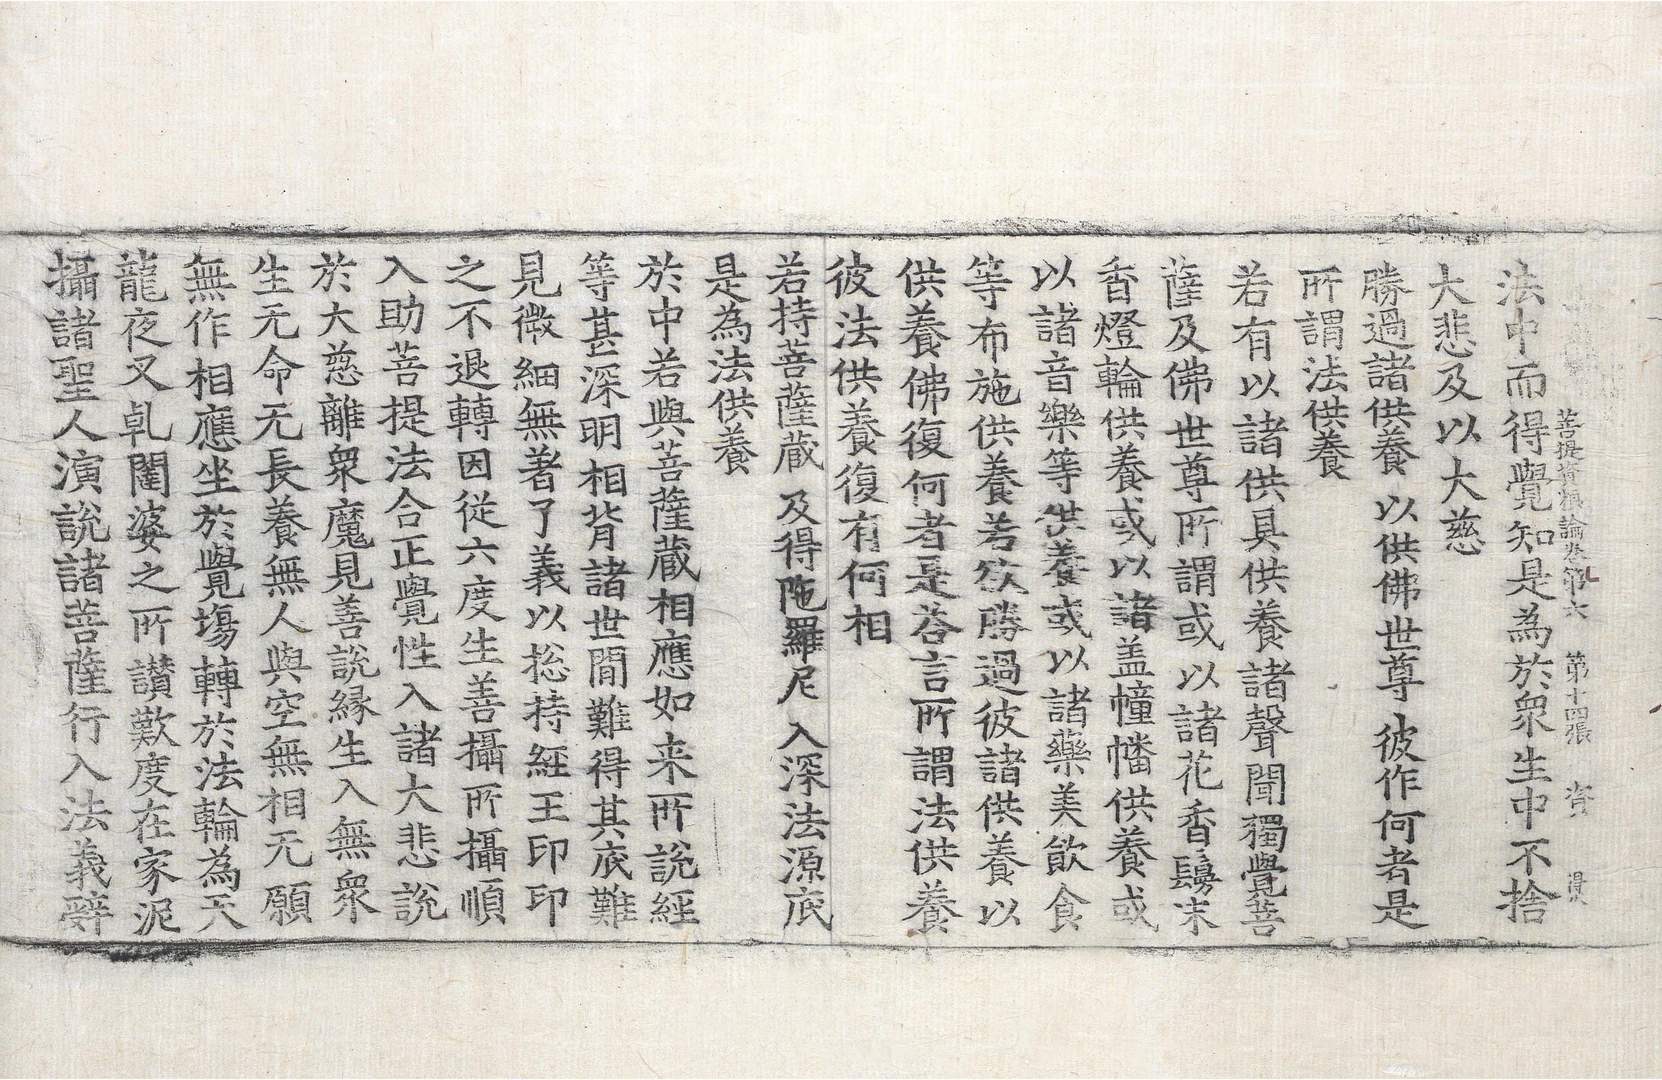 菩提資粮論卷第六 第十四張 資
法中而得覺知是為於衆生中不捨
大悲及以大慈
勝過諸供養 以供佛世尊 彼作何者是
所謂法供養
若有以諸供具供養諸聲聞獨覺菩
薩及佛世尊所謂或以諸花香鬘末
香燈輪供養或以諸盖幢幡供養或
以諸音樂等供養或以諸藥美飲食
等布施供養若欲勝過彼諸供養以
供養佛復何者是荅言所謂法供養
彼法供養復有何相
若持菩薩蔵 及得陁羅尼 入深法源底
是為法供養
於中若與菩薩蔵相應如来所說經
等甚深明相背諸世間難得其底難
見微細無著了義以捴持經王印印
之不退轉因從六度生善攝所攝順
入助菩提法合正覺性入諸大悲說
於大慈離衆魔見善說緣生入無衆
生无命无長養無人與空無相无願
無作相應坐於覺場轉於法輪為天
龍夜叉乹闥婆之所讃歎度在家泥
攝諸聖人演說諸菩薩行入法義辭